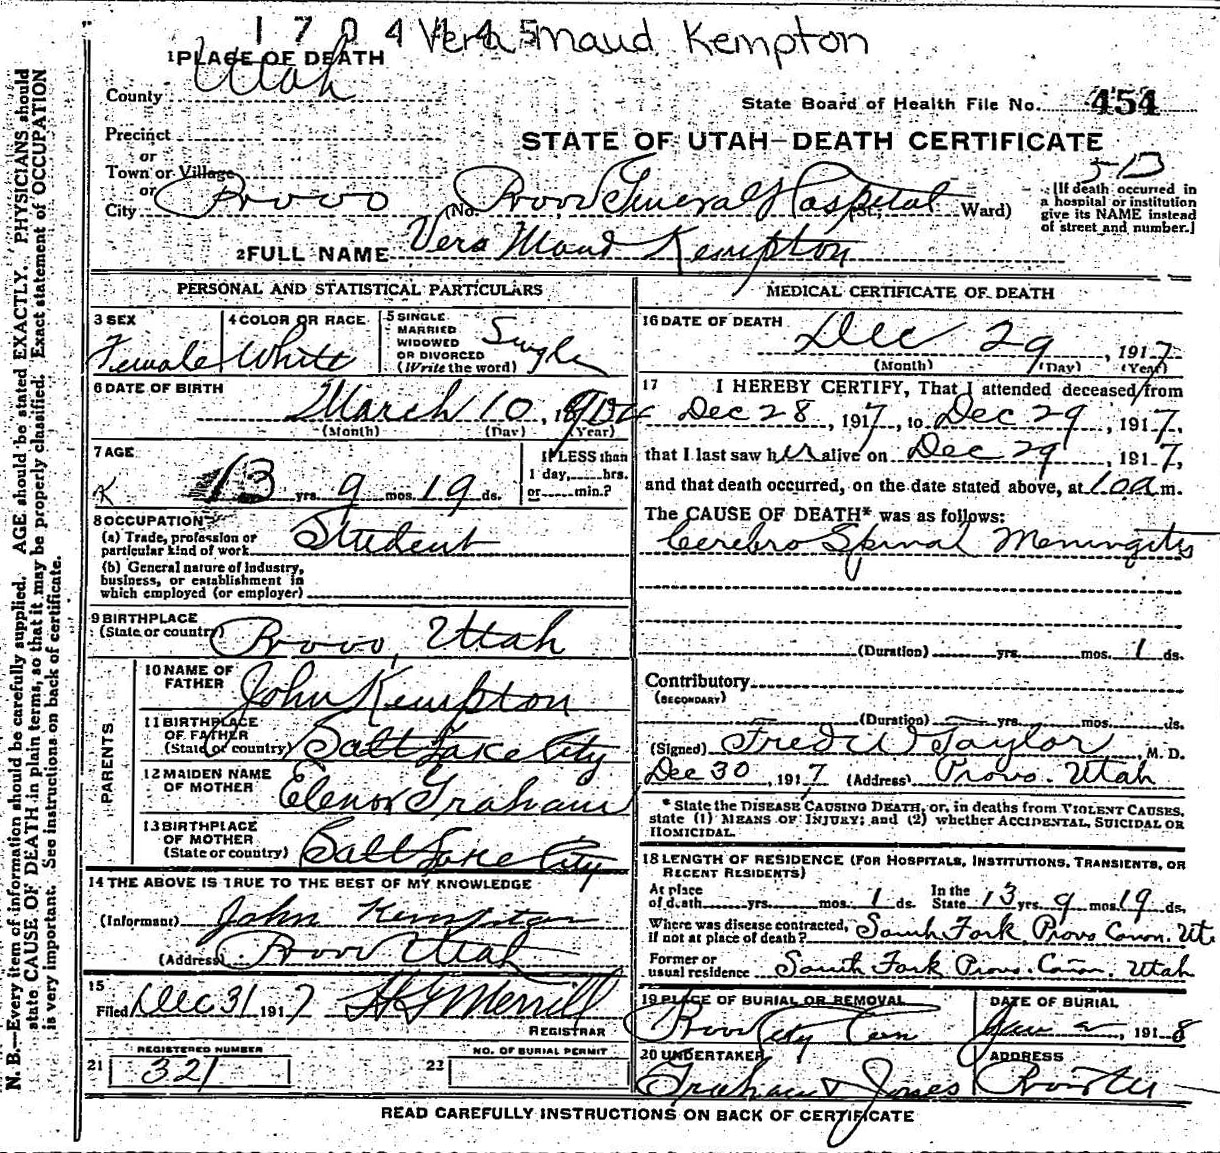 1 7 0 4 1 4 5 Vera Maud Kempton
1 PLACE OF DEATH
County Utah
State Board of Health File No. 454
Precinct
STATE OF UTAH—DEATH CERTIFICATE
or
Town or Village
or
City Provo (No. Provo General Hospital St.; Ward)
[If death occurred in
a hospital or institution
give its NAME instead
of street and number.]
2 FULL NAME Vera Maud Kempton
PERSONAL AND STATISTICAL PARTICULARS
3 SEX
Female
4 COLOR OR RACE
White
5 SINGLE
MARRIED
WIDOWED
OR DIVORCED
(Write the word)
Single
6 DATE OF BIRTH
March 10
(Month) (Day) (Year)
7 AGE
13 yrs. 9 mos. 19 ds.
If LESS than
1 day, hrs.
or min.?
8 OCCUPATION
(a) Trade, profession or
particular kind of work Student
(b) General nature of industry,
business, or establishment in
which employed (or employer)
9 BIRTHPLACE
(State or country) Provo, Utah
PARENTS
10 NAME OF
FATHER John Kempton
11 BIRTHPLACE
OF FATHER
(State or country) Salt Lake City
12 MAIDEN NAME
OF MOTHER Elenor Graham
13 BIRTHPLACE
OF MOTHER
(State or country) Salt Lake City
14 THE ABOVE IS TRUE TO THE BEST OF MY KNOWLEDGE
(Informant) John Kempton
(Address) Provo Utah
15
Filed Dec 31 1917 H G Merrill
REGISTRAR
REGISTERED NUMBER
21 321
NO. OF BURIAL PERMIT
22
MEDICAL CERTIFICATE OF DEATH
16 DATE OF DEATH
Dec 29, 1917
(Month) (Day) (Year)
17 I HEREBY CERTIFY, That I attended deceased from
Dec 28, 1917, to Dec 29, 1917,
that I last saw her alive on Dec 29, 1917,
and that death occurred, on the date stated above, at 10 a m.
The CAUSE OF DEATH* was as follows:
Cerebro Spinal Meningitis
(Duration) yrs. mos. 1 ds.
Contributory
(SECONDARY)
(Duration) yrs. mos. ds.
(Signed) Fred W Taylor, M. D.
Dec 30, 1917 (Address) Provo. Utah
* State the DISEASE CAUSING DEATH, or, in deaths from VIOLENT CAUSES,
state (1) MEANS OF INJURY; and (2) whether ACCIDENTAL, SUICIDAL OR
HOMICIDAL.
18 LENGTH OF RESIDENCE (FOR HOSPITALS, INSTITUTIONS, TRANSIENTS, OR
RECENT RESIDENTS)
At place
of death yrs. mos. 1 ds.
In the
State 13 yrs. 9 mos. 19 ds.
Where was disease contracted,
if not at place of death? South Fork Provo Canon. Ut.
Former or
usual residence South Fork Provo. Cañon. Utah
19 PLACE OF BURIAL OR REMOVAL
Provo City Cem
DATE OF BURIAL
Jan 2, 1918
20 UNDERTAKER
Graham & Jones
ADDRESS
Provo
READ CAREFULLY INSTRUCTIONS ON BACK OF CERTIFICATE
N. B.—Every item of information should be carefully supplied. AGE should be stated EXACTLY. PHYSICIANS should
state CAUSE OF DEATH in plain terms, so that it may be properly classified. Exact statement of OCCUPATION
is very important. See instructions on back of certificate.